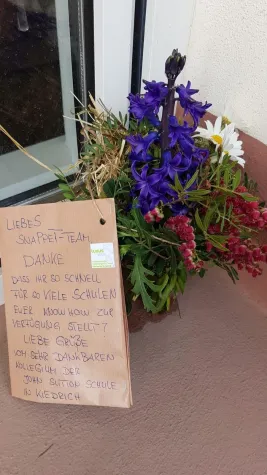 LIEBES
SNAPPET-TEAM
DANKE
DASS IHR SO SCHNELL
FÜR SO VIELE SCHULEN
EUER KNOW HOW ZUR
VERFÜGUNG STELLT!
LIEBE GRÜßE
VOM SEHR DANKBAREN
KOLLEGIUM DER
JOHN SUTTON SCHULE
IN KIEDRICH